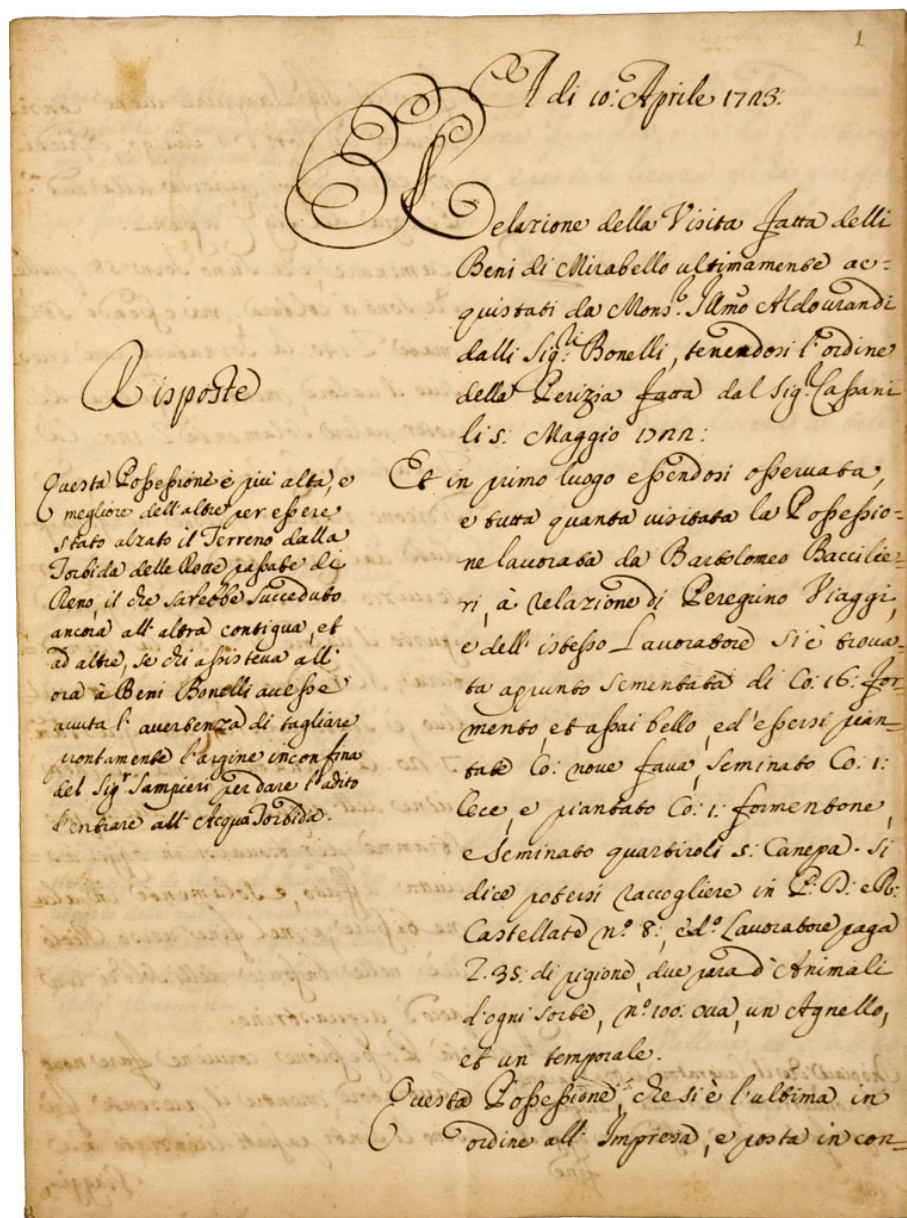 1
A di 10: Aprile 1723:
Relazione della Visita fatta delli
Beni di Mirabello ultimamente ac-
quistati da Mons.r Ill.mo Aldourandi
dalli Sig.ri Bonelli, tenendosi l'ordine
della Perizia fatta dal Sig.r Cassani
li 5: Maggio 1722:
Et in primo luogo essendosi osseruata,
e tutta quanta uisitata la Possessio-
ne lauorata da Bartolomeo Baccilie-
ri, à relazione di Peregrino Viaggi,
e dell'istesso Lauoratore si è troua-
ta apunto sementata di Co: 16: For-
mento, et assai bello, ed'essersi pian-
tate Co: noue faua, seminato Co: 1:
Cece, e piantato Co: 1: formentone,
e seminato quartiroli 5: Canepa. Si
dice potersi raccogliere in P: D: e R:
Castellate n.o 8:, e d.o Lauoratore paga
L. 35: di pigione, due para d'Animali
d'ogni sorte, n.o 100: oua, un Agnello,
et un temporale.
Questa Possessione, che si è l'ultima in
ordine all'Impresa, e posta in con-
Risposte
Questa Possessione è più alta, e
megliore dell'altre per essere
stato alzato il Terreno dalla
Torbida delle Rotte passate di
Reno, il che sarebbe succeduto
ancora all'altra contigua, et
ad altre, se chi assisteua all'
ora à Beni Bonelli auesse
auuta l'auertenza di tagliare
prontamente l'argine in confina
del Sig.r Sampieri per dare l'adito
d'entrare all'Acqua Torbida.